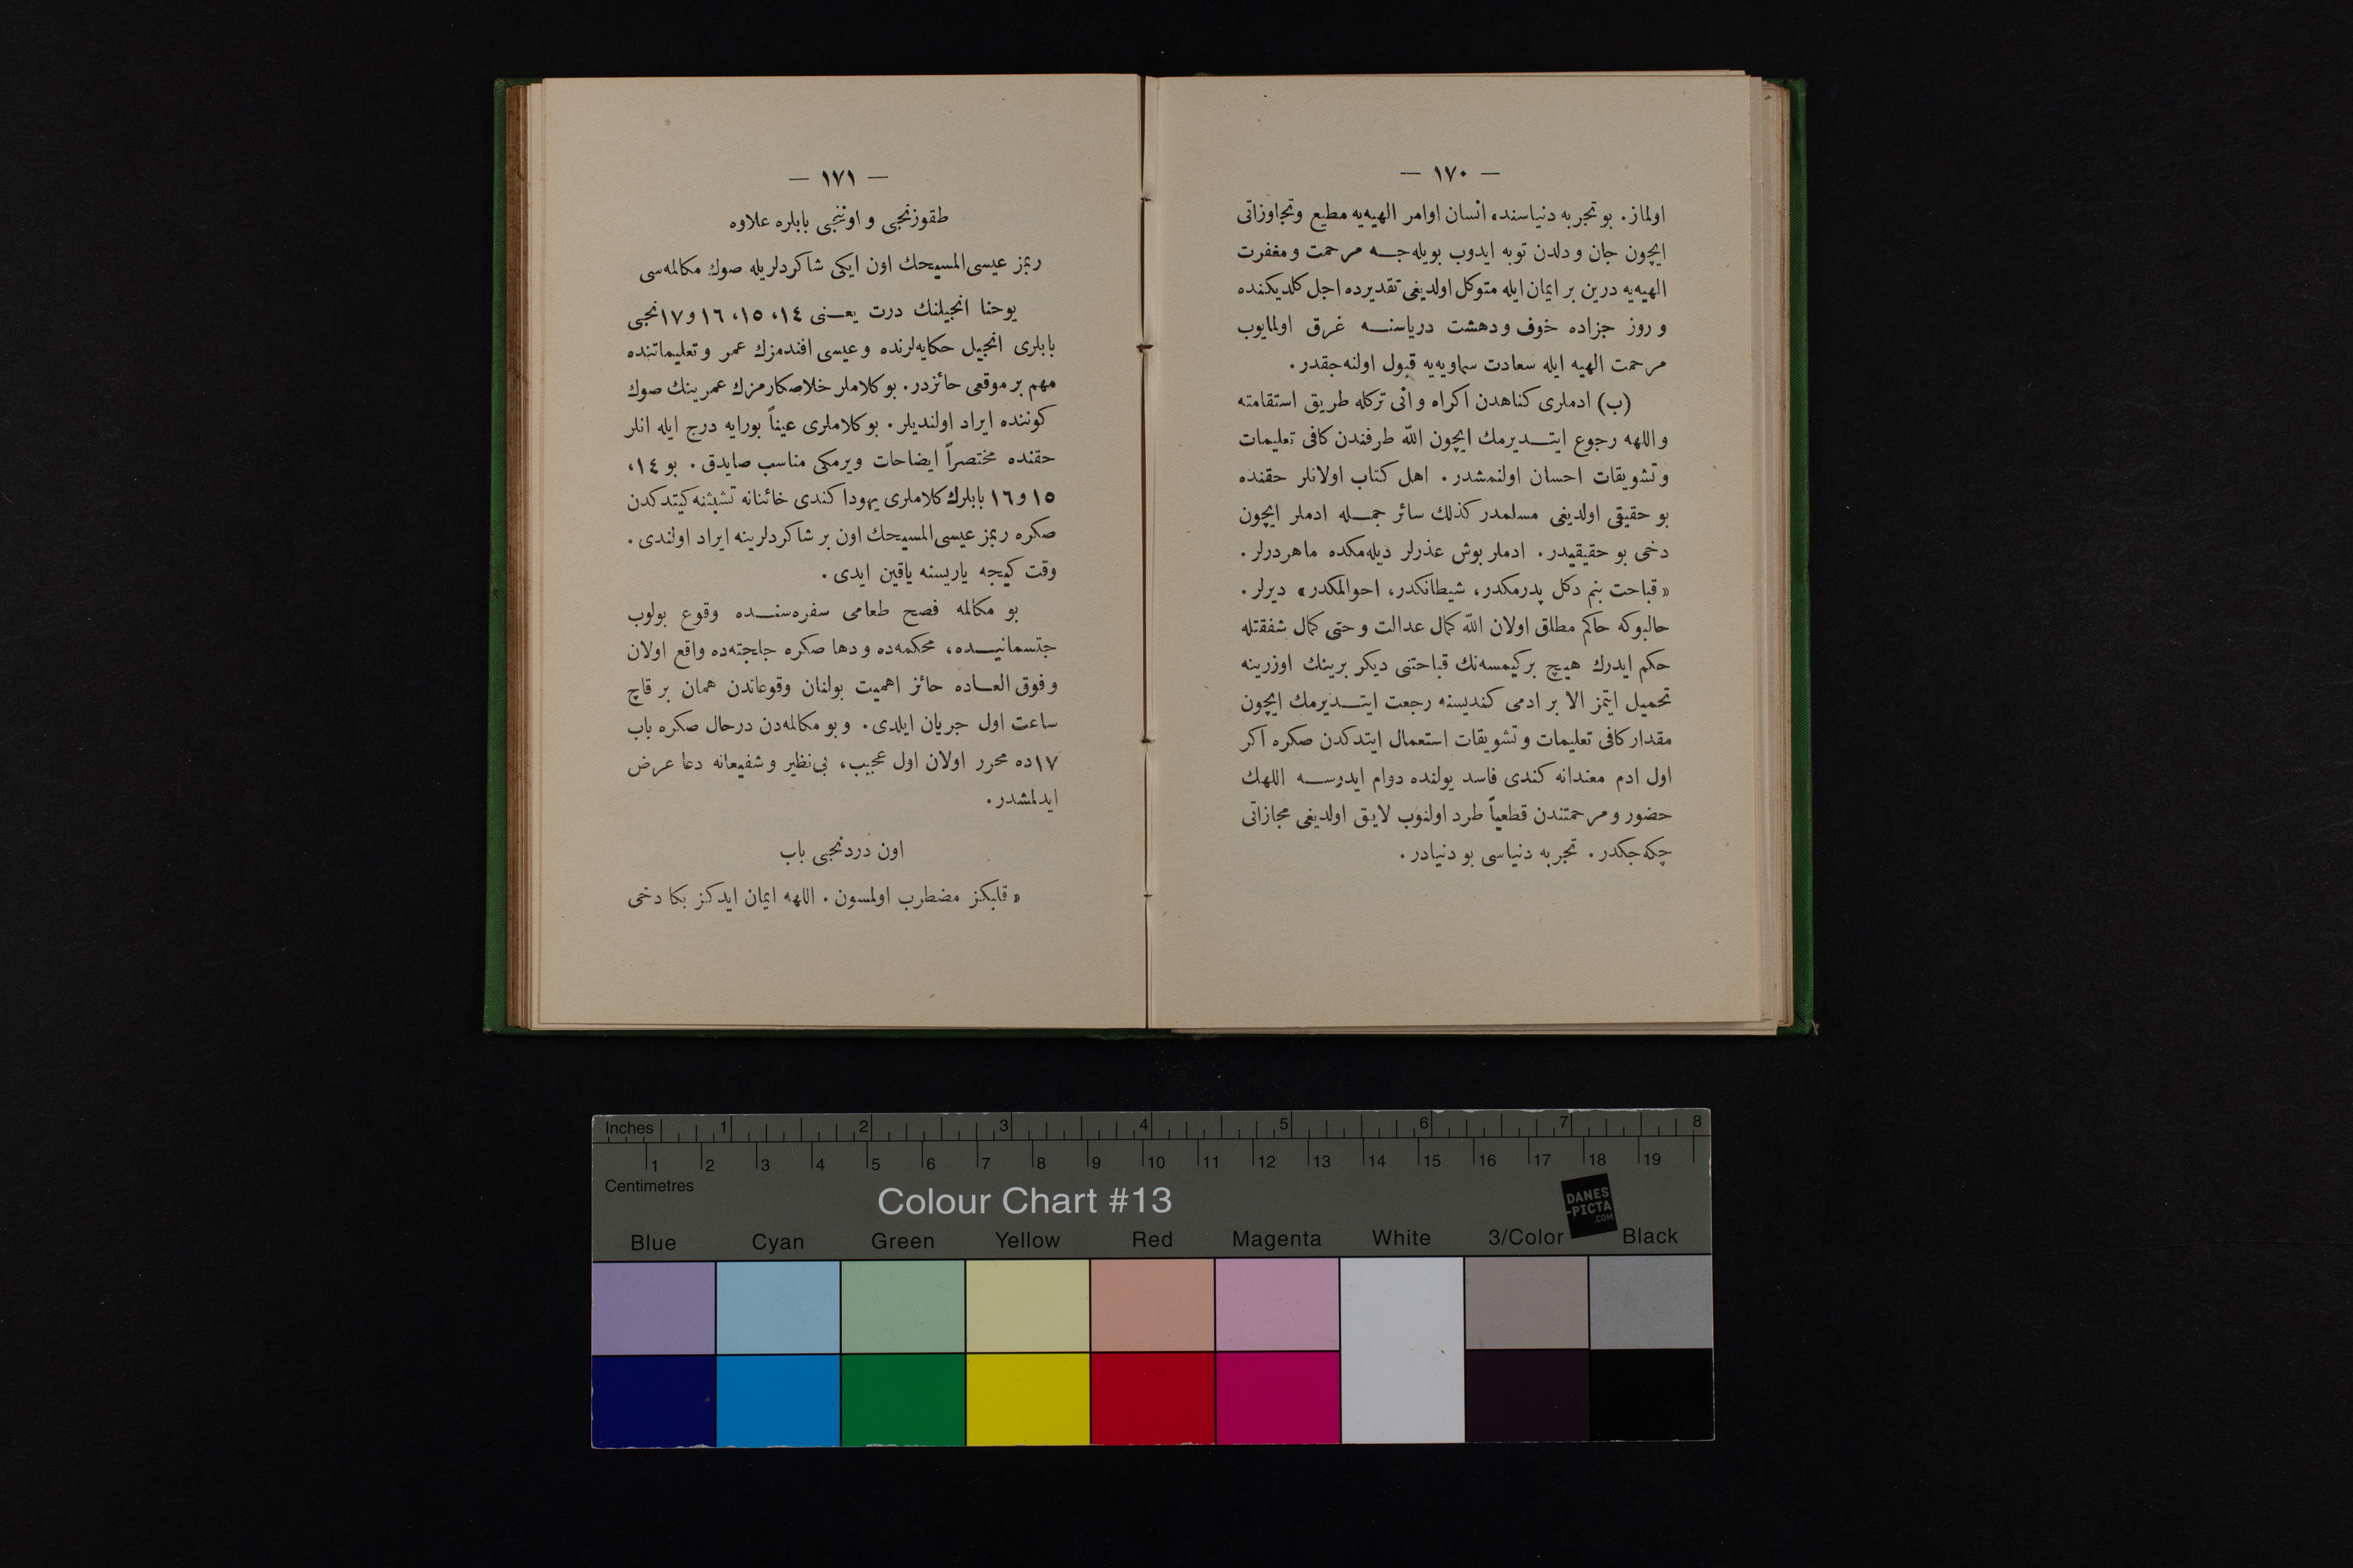 — ١٧٠ —
اولماز. بو تجربه دنیاسنده انسان اوامر الهیه‌یه مطیع وتجاوزاتی
ایچون جان و دلدن توبه ایدوب بویله‌جــه مرحمت و مغفرت
الهیه‌یه درین بر ایمان ایله متوکل اولدیغی تقدیرده اجل کلدیکنده
و روز جزاده خوف و دهشت دریاسنــه غرق اولمایوب
مرحمت الهیه ایله سعادت سماویه‌یه قبول اولنه‌جقدر.
(ب) ادملری کناهدن اکراه و انی ترکله طریق استقامته
و اللهه رجوع ایتــدیرمك ایچون اللّه طرفندن کافی تعلیمات
و تشویقات احسان اولنمشدر. اهل کتاب اولانلر حقنده
بو حقیقی اولدیغی مسلمدر کذلك سائر جمــله ادملر ایچون
دخی بو حقیقیدر. ادملر بوش عذرلر دیله‌مکده ماهردرلر.
«قباحت بنم دکل پدرمکدر، شیطانکدر، احوالمکدر» دیرلر.
حالبوکه حاکم مطلق اولان اللّه کمال عدالت و حتی کمال شفقتله
حکم ایدرك هیــچ بر کیمسه‌نك قباحتنی دیکر برینك اوزرینه
تحمیل ایتمز الا بر ادمی کندیسنه رجعت ایتــدیرمك ایچون
مقدار کافی تعلیمات و تشویقات استعمال ایتدکدن صکره اکر
اول ادم معندانه کندی فاسد یولنده دوام ایدرســه اللهك
حضور و مرحمتندن قطعیاً طرد اولنوب لایق اولدیغی مجازاتی
چکه‌جکدر. تجربه دنیاسی بو دنیادر.
— ١٧١ —
طقوزنجی و اوننجی بابلره علاوه
ربمز عیسی‌المسیحك اون ایکی شاکردلریله صوك مکالمه‌سی
یوحنا انجیلنك درت یعــنی ١٤، ١٥، ١٦ و ١٧نجی
بابلری انجیل حکایه‌لرنده و عیسی افندمزك عمر و تعلیماتنده
مهم بر موقعی حائزدر. بو کلاملر خلاصکارمزك عمرینك صوك
کوننده ایراد اولندیلر. بو کلاملری عیناً بورایه درج ایله انلر
حقنده مختصراً ایضاحات ویرمکی مناسب صایدق. بو ١٤،
١٥ و ١٦ بابلرك کلاملری یهودا کندی خائنانه تشبثنه کیتدکدن
صکره ربمز عیسی‌المسیحك اون بر شاکردلرینه ایراد اولندی.
وقت کیجه یاریسنه یاقین ایدی.
بو مکالمه فصح طعامی سفره‌سنــده وقوع بولوب
جتسمانیــده، محکمه‌ده و دها صکره جلجته‌ده واقع اولان
و فوق العــاده حائز اهمیت بولنان وقوعاتدن همان بر قاچ
ساعت اول جریان ایلدی. و بو مکالمه‌دن درحال صکره باب
١٧ده محرر اولان اول عجیب، بی‌نظیر و شفیعانه دعا عرض
ایدلمشدر.
اون دردنجی باب
«قلبکز مضطرب اولمسون. اللهه ایمان ایدکز بکا دخی
Inches 1 2 3 4 5 6 7 8
1 2 3 4 5 6 7 8 9 10 11 12 13 14 15 16 17 18 19
Centimetres
Colour Chart #13
DANES
-PICTA
.COM
Blue Cyan Green Yellow Red Magenta White 3/Color Black